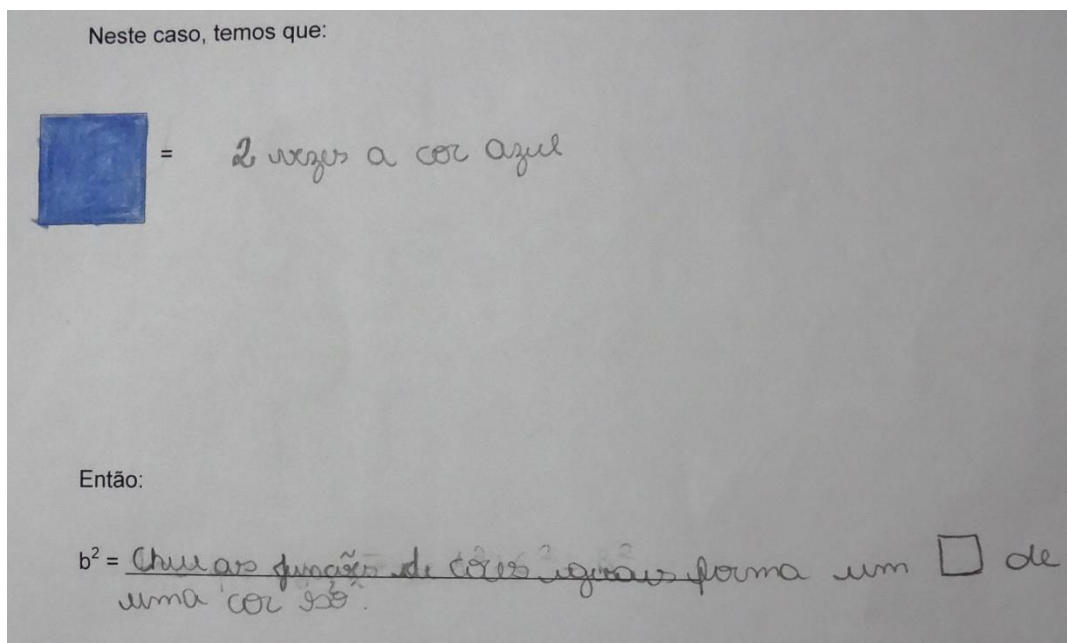 Neste caso, temos que:
= 2 vezes a cor azul
Então:
b² = as junções de cores iguais forma um □ de
uma cor só.